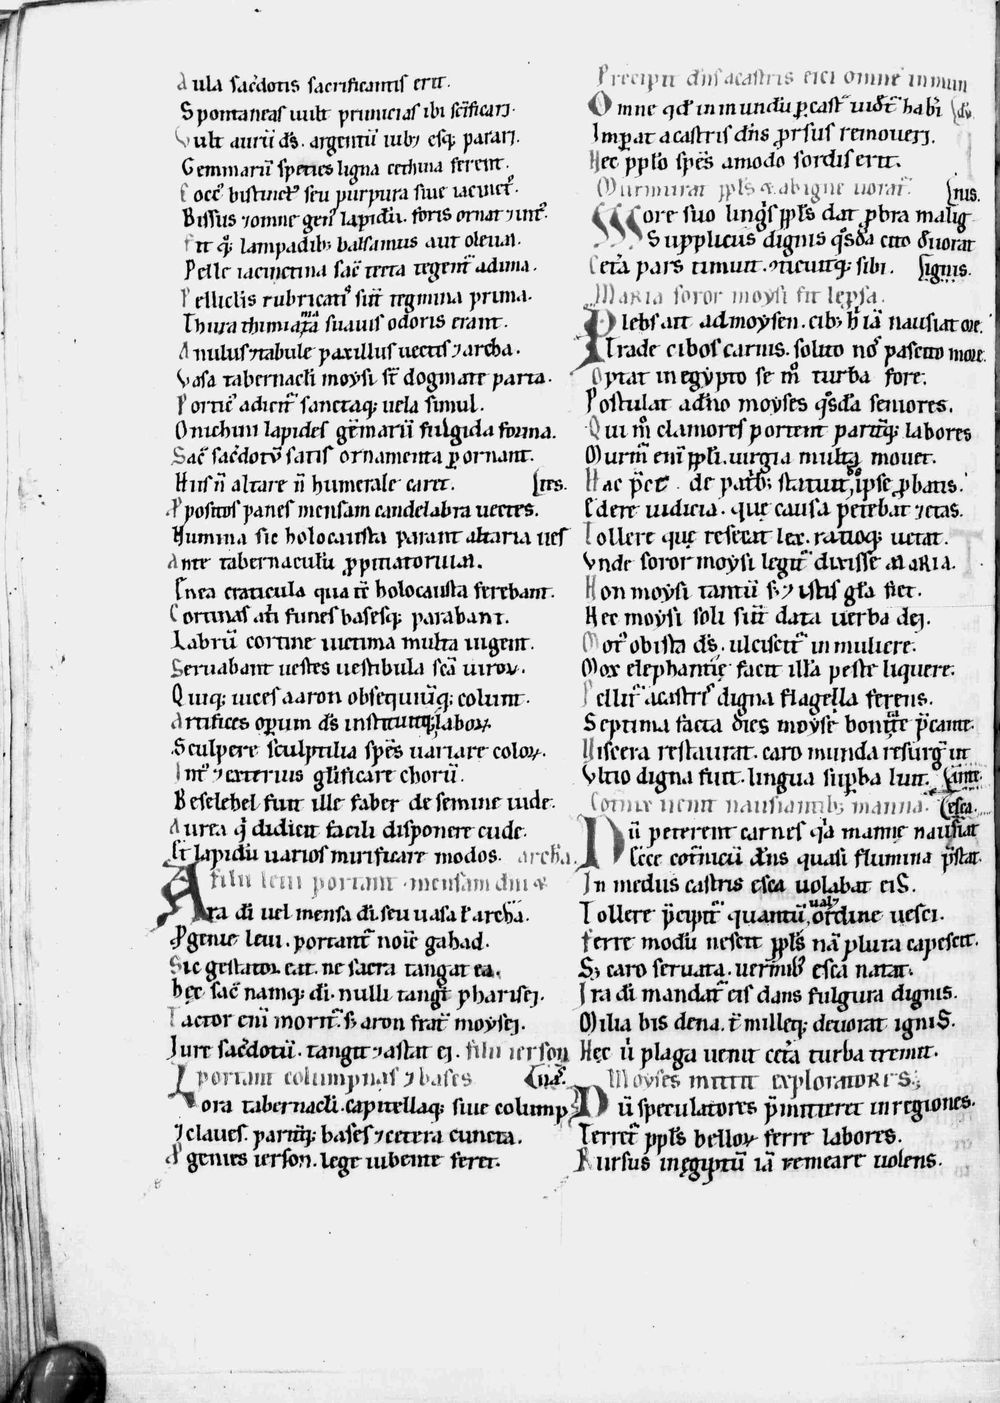 Aula sac̄dotis sacrificantis erit.
Spontaneas uult primicias ibi sc̄ificarj.
Vult aurū ds̄. argentū iubꝫ esqꝫ pararj.
Gemmarū species ligna cethina ferent.
Cocc᷒ bistinct᷒ seu purpura siue iacinct᷒.
Bissus ⁊omne gen᷒ lapidū. foris ornat ⁊int᷒.
Fit qꝫ lampadibꝫ balsamus aut oleum.
Pelle iacinctina sac̄ tecta tegent᷒ adima.
Pelliclis rubricati᷒ sūt tegmina prima.
Thura thimiamata suauis odoris erant.
Anulus ⁊tabule paxillus uectis ⁊archa.
Vasa tabernacli moysi st̄ dogmate parta.
Portic᷒ adicit᷒ sanctaqꝫ uela simul.
Onichini lapides gēmarū fulgida forma.
Sac̄ sac̄dotū satis ornamenta ꝑornant.
His n̄ altare n̄ humerale caret.
ꝓpositos panes mensam candelabra uectes.
Numina sic holocausta parant altaria ues
Ante tabernaculū ꝓpitiatorium. tes.
Enea craticula qua tr̄ holocausta ferebant.
Cortinas atri funes basesqꝫ parabant.
Labrū cortine uictima multa uigent.
Seruabant uestes uestibula sc̄a uiroꝝ.
Quiqꝫ uices aaron obsequiūqꝫ colunt.
Artifices oꝑum ds̄ instituitqꝫ laboꝝ.
Sculpere sculptilia spēs uariare coloꝝ.
Int᷒ ⁊exterius glīficare chorū.
Beselehel fuit ille faber de semine iude.
Aurea q̄ didicit facili disponere cude.
Et lapidū uarios mirificare modos.
Filii leui portant mensam dni ⁊ archa.
Ara di uel mensa di seu uasa ł archa.
ꝓgenie leui. portant᷒ noīe gahad.
Sic gestatoꝝ cat. ne sacra tangat ea.
hec sac̄ namqꝫ di. nulli tangi pharisej.
Tactor enī morit᷒. s; aron frat᷒ moysej.
Iure sac̄dotū. tangit ⁊astat ej. filii ierson
portant columpnas ⁊ bases
Lora tabernacli. capitellaqꝫ siue colump nas.
⁊claues. paritqꝫ bases ⁊cetera cuncta.
ꝓgenies ierson. lege iubente feret.
Precipit dn̄s acastris eici omne inmun dū.
Omne qd̄ inmundū ꝑcastr̄ uidet᷒ habȓi
Imꝑat acastris dn̄s ꝓrsus remouerj.
Nec ppl̄o spēs amodo sordis erit.
Murmurat ppl̄s ⁊abigne uorat᷒.
More suo lingȝs ppl̄s dat ꝓbra malig nis.
Suppliciis dignis qͦsdā cito deuorat ignis.
Cet̄a pars timuit. ⁊ticuitqꝫ sibi.
Maria soror moysi fit lepsa.
Plebs ait admoysen. cibꝫ h᷒ iā nausiat ore.
Trade cibos carnis. solito nos pascito more.
Optat inegypto se mͦ turba fore.
Postulat adn̄o moyses qͦsdā seniores.
Qui mͦ clamores portent paritqꝫ labores
Murm᷒ enī ppl̄i. iurgia multa mouet.
Edere iudicia. que causa peterebat ⁊etas.
Tollere que resecat lex. ratioqꝫ uetat.
Vnde soror moysi legit᷒ dixisse maria.
Non moysi tantū s; ⁊ istis gl̄a fiet.
Nec moysi soli sūt data uerba dej.
Mot᷒ obista ds̄. ulciscit᷒ inmuliere.
Mox elephantie facit illā peste liquere.
Pellit᷒ acastris digna flagella ferens.
Septima facta dies moysē bonitate p̄cante.
Viscera restaurat. caro munda resurgit ut ante.
Vltio digna fuit. lingua suꝑba luit.
Cotnix uenit nausiantibꝫ manna. esca.
Dū peterent carnes qa manne nausiat
Ecce cotnicū dn̄s quasi flumina p̄stat.
In mediis castris esca uolabat eis.
Tollere p̄cipit᷒ quantū ualꝫ ordine uesci.
Ferre modū nescit ppl̄s nā plura capescit.
Sꝫ caro seruata. uermibꝫ esca natat.
Ira di mandat᷒ eis dans fulgura dignis.
Milia bis dena. t̄ milleqꝫ deuorat ignis.
Nec ū plaga uenit cet̄a turba tremit.
Moyses mittit exploratores.
Dū speculatores p̄mitteret inregiones.
Terret᷒ ppl̄s belloꝝ ferre labores.
Rursus inegiptū iā remeare uolens.